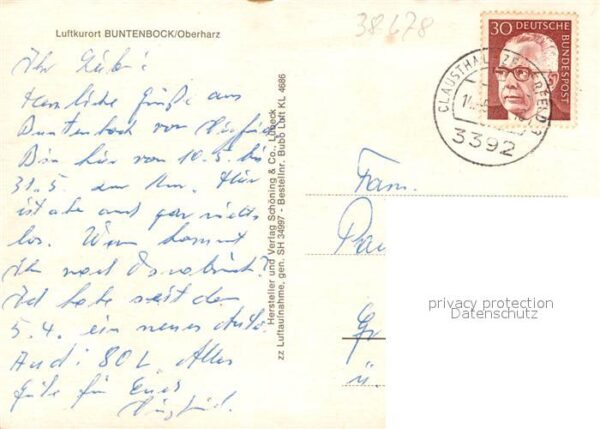 38678
Luftkurort BUNTENBOCK/Oberharz
Ihr Lieben!
Herzliche Grüße aus
Buntenbock von
Bin hier von 10.5. bis
31.5. zur Kur. Hier
ist aber auch gar nichts
los. Wann kommt
ihr nach Osnabrück?
Ich habe seit dem
5.4. ein neues Auto.
Audi 80 L. Alles
Gute für Euch
Hersteller und Verlag Schöning & Co., Lübeck
zz Luftaufnahme, gen. SH 34997 - Bestellnr. Bubo Luft KL 4686
30 DEUTSCHE
BUNDESPOST
CLAUSTHAL-ZELLERFELD
3392
Fam.
privacy protection
Datenschutz
ü.